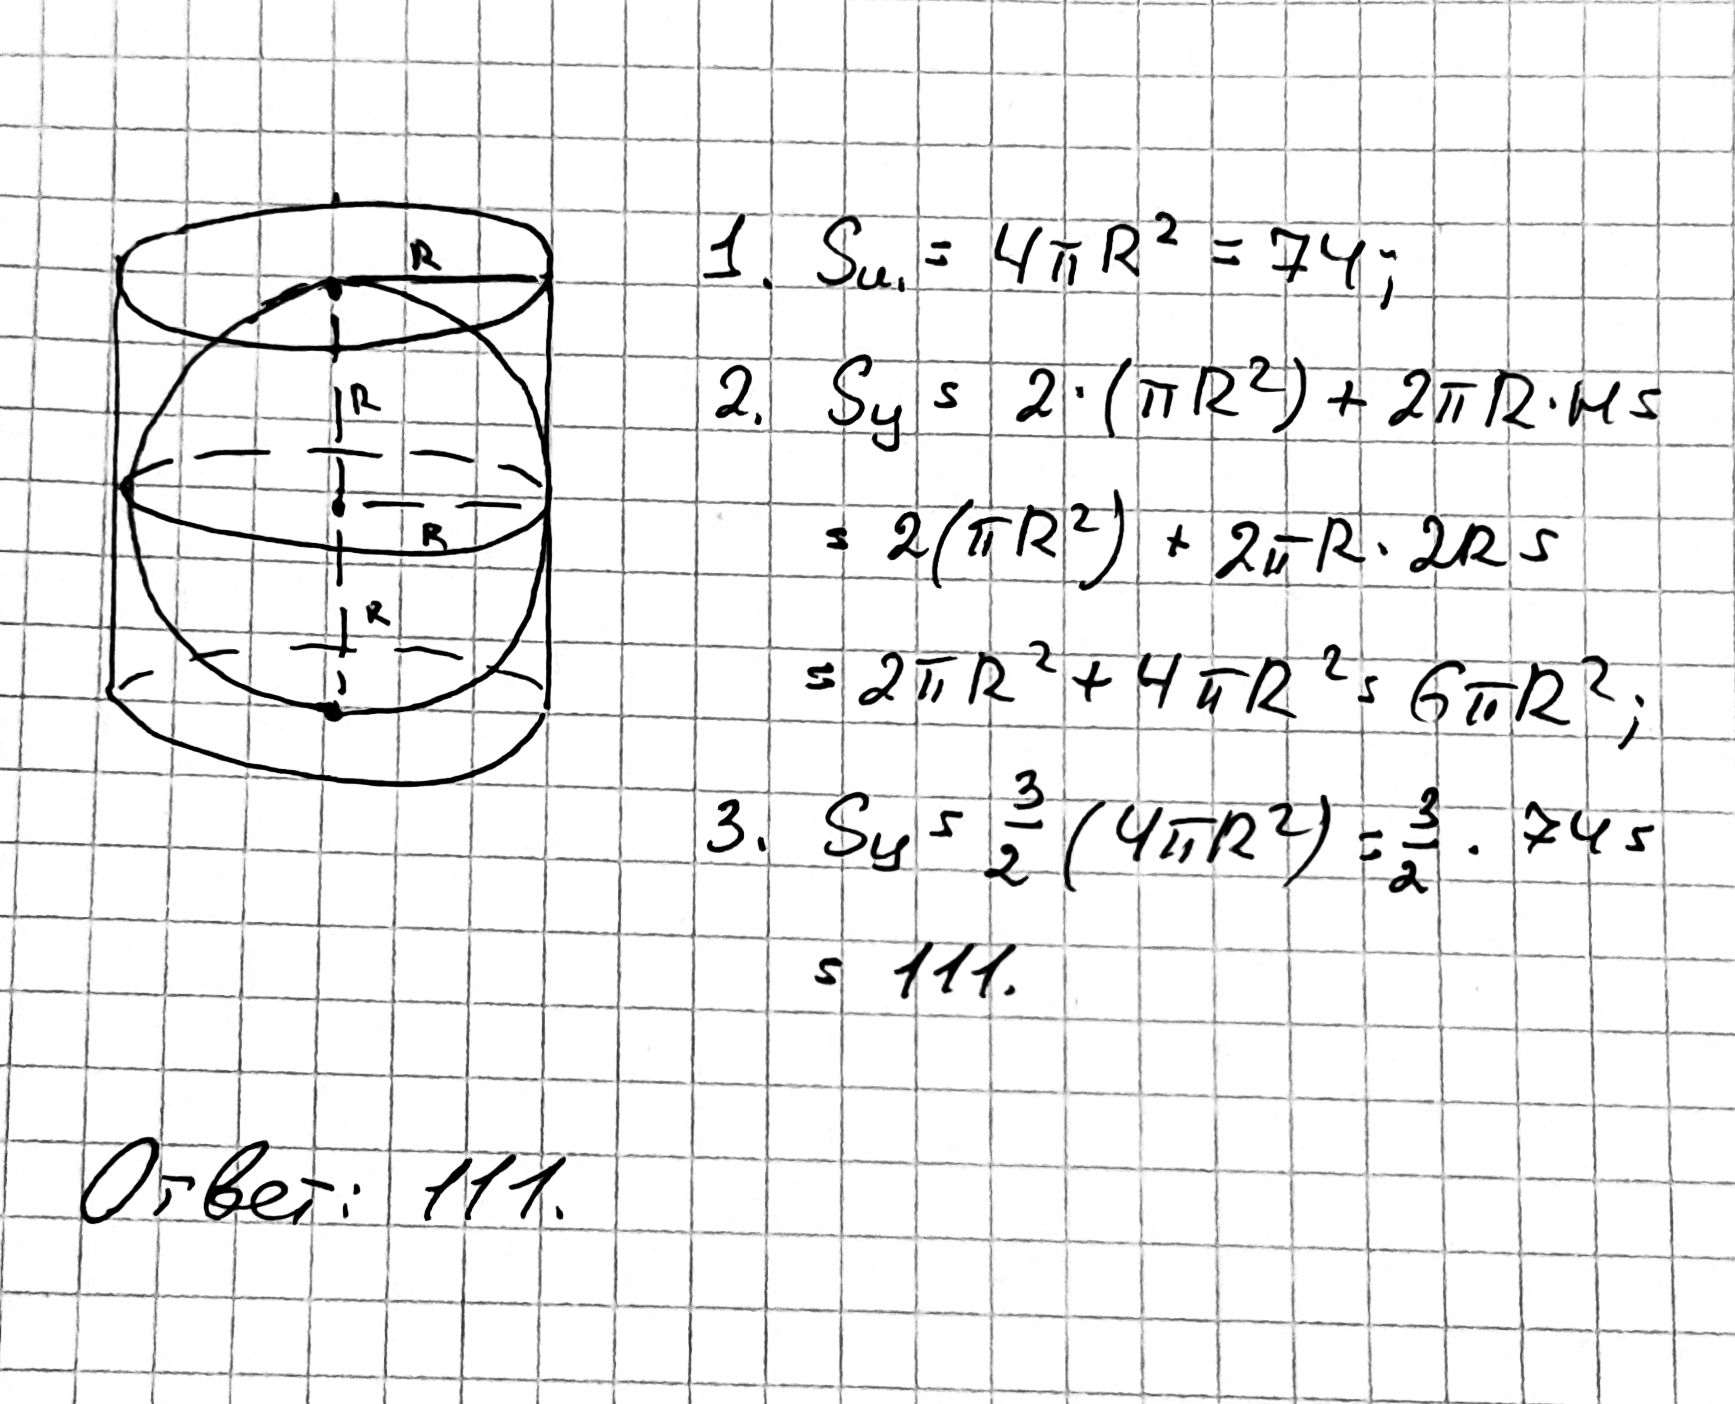 R
R
R
R
1. Sш. = 4πR² = 74;
2. Sц = 2·(πR²) + 2πR·H =
= 2(πR²) + 2πR·2R =
= 2πR² + 4πR² = 6πR²;
3. Sц = 3/2 (4πR²) = 3/2 · 74 =
= 111.
Ответ: 111.